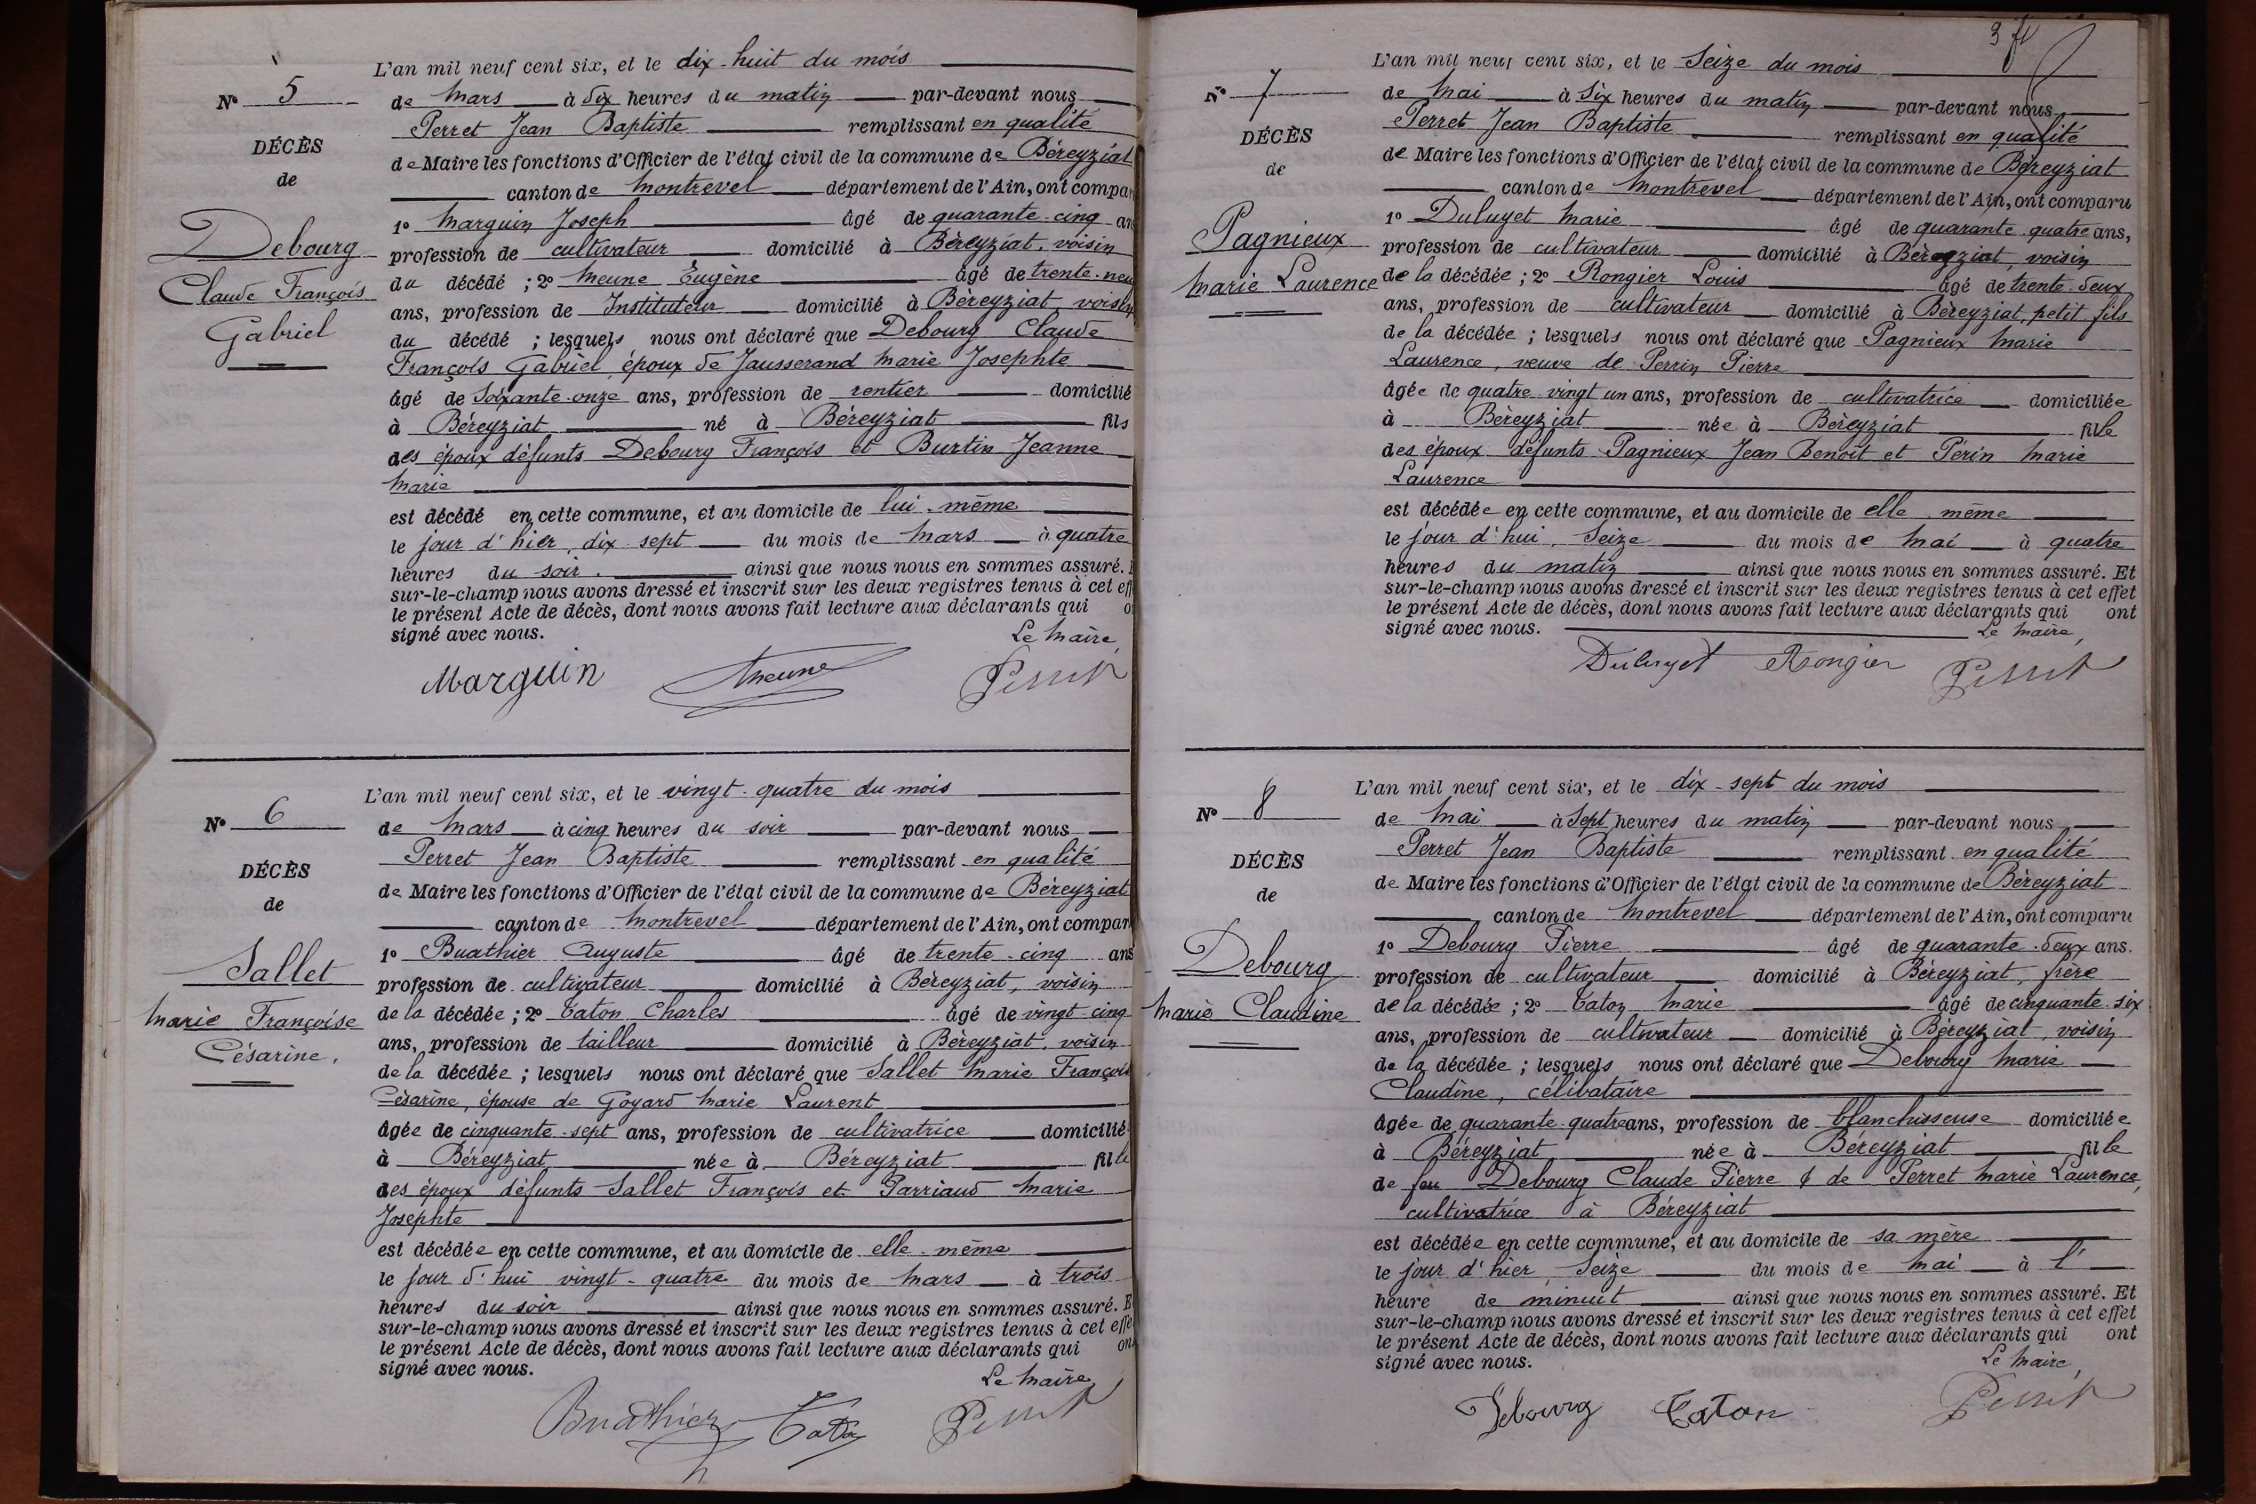 L'an mil neuf cent six, et le dix-huit du mois
N° 5
de Mars à dix heures du matin par-devant nous
Perret Jean Baptiste remplissant en qualité
DÉCÈS
de Maire les fonctions d'Officier de l'état civil de la commune de Béreyziat
de
canton de Montrevel département de l'Ain, ont compar
1° Marguin Joseph âgé de quarante-cinq ans
Debourg
profession de cultivateur domicilié à Béreyziat, voisin
Claude François
du décédé ; 2° Meune Eugène âgé de trente-neu
Gabriel
ans, profession de Instituteur domicilié à Béreyziat voisin
du décédé ; lesquels nous ont déclaré que Debourg Claude
François Gabriel, époux de Jausserand Marie Josephte
âgé de Soixante-onze ans, profession de rentier domicilié
à Béreyziat né à Béreyziat fils
des époux défunts Debourg François et Burtin Jeanne
Marie
est décédé en cette commune, et au domicile de lui-même
le jour d'hier, dix-sept du mois de Mars à quatre
heures du soir. ainsi que nous nous en sommes assuré. E
sur-le-champ nous avons dressé et inscrit sur les deux registres tenus à cet eff
le présent Acte de décès, dont nous avons fait lecture aux déclarants qui o
signé avec nous.
Le Maire,
Marguin Meune Perret
L'an mil neuf cent six, et le vingt-quatre du mois
N° 6
de Mars à cinq heures du soir par-devant nous
Perret Jean Baptiste remplissant en qualité
DÉCÈS
de Maire les fonctions d'Officier de l'état civil de la commune de Béreyziat
de
canton de Montrevel département de l'Ain, ont compar
1° Buathier Auguste âgé de trente-cinq ans
Sallet
profession de cultivateur domicilié à Béreyziat, voisin
Marie Françoise
de la décédée ; 2° Caton Charles âgé de vingt-cinq
Césarine,
ans, profession de tailleur domicilié à Béreyziat, voisin
de la décédée ; lesquels nous ont déclaré que Sallet Marie Françoise
Césarine, épouse de Goyard Marie Laurent
âgée de cinquante-sept ans, profession de cultivatrice domicilié
à Béreyziat née à Béreyziat fille
des époux défunts Sallet François et Parriaud Marie
Josephte
est décédée en cette commune, et au domicile de elle-même
le jour d'hui vingt-quatre du mois de Mars à trois
heures du soir ainsi que nous nous en sommes assuré. E
sur-le-champ nous avons dressé et inscrit sur les deux registres tenus à cet effe
le présent Acte de décès, dont nous avons fait lecture aux déclarants qui on
signé avec nous.
Le Maire,
Buathier Caton Perret
3
L'an mil neuf cent six, et le Seize du mois
N° 7
de Mai à Six heures du matin par-devant nous
Perret Jean Baptiste remplissant en qualité
DÉCÈS
de Maire les fonctions d'Officier de l'état civil de la commune de Béreyziat
de
canton de Montrevel département de l'Ain, ont comparu
1° Duluyet Marie âgé de quarante-quatre ans,
Pagnieux
profession de cultivateur domicilié à Béreyziat, voisin
Marie Laurence
de la décédée ; 2° Rongier Louis âgé de trente-deux
ans, profession de cultivateur domicilié à Béreyziat, petit fils
de la décédée ; lesquels nous ont déclaré que Pagnieux Marie
Laurence, veuve de Perrin Pierre
âgée de quatre-vingt un ans, profession de cultivatrice domiciliée
à Béreyziat née à Béreyziat fille
des époux défunts Pagnieux Jean Benoit et Périn Marie
Laurence
est décédée en cette commune, et au domicile de elle-même
le jour d'hui, Seize du mois de Mai à quatre
heures du matin ainsi que nous nous en sommes assuré. Et
sur-le-champ nous avons dressé et inscrit sur les deux registres tenus à cet effet
le présent Acte de décès, dont nous avons fait lecture aux déclarants qui ont
signé avec nous.
Le Maire,
Duluyet Rongier Perret
L'an mil neuf cent six, et le dix-sept du mois
N° 8
de Mai à Sept heures du matin par-devant nous
Perret Jean Baptiste remplissant en qualité
DÉCÈS
de Maire les fonctions d'Officier de l'état civil de la commune de Béreyziat
de
canton de Montrevel département de l'Ain, ont comparu
1° Debourg Pierre âgé de quarante-deux ans.
Debourg
profession de cultivateur domicilié à Béreyziat, frère
Marie Claudine
de la décédée ; 2° Caton Marie âgé de cinquante-six
ans, profession de cultivateur domicilié à Béreyziat, voisin
de la décédée ; lesquels nous ont déclaré que Debourg Marie
Claudine, célibataire
âgée de quarante-quatre ans, profession de blanchisseuse domiciliée
à Béreyziat née à Béreyziat fille
de feu Debourg Claude Pierre & de Perret Marie Laurence,
cultivatrice à Béreyziat
est décédée en cette commune, et au domicile de sa mère
le jour d'hier, Seize du mois de Mai à l'
heure de minuit ainsi que nous nous en sommes assuré. Et
sur-le-champ nous avons dressé et inscrit sur les deux registres tenus à cet effet
le présent Acte de décès, dont nous avons fait lecture aux déclarants qui ont
signé avec nous.
Le Maire,
Debourg Caton Perret